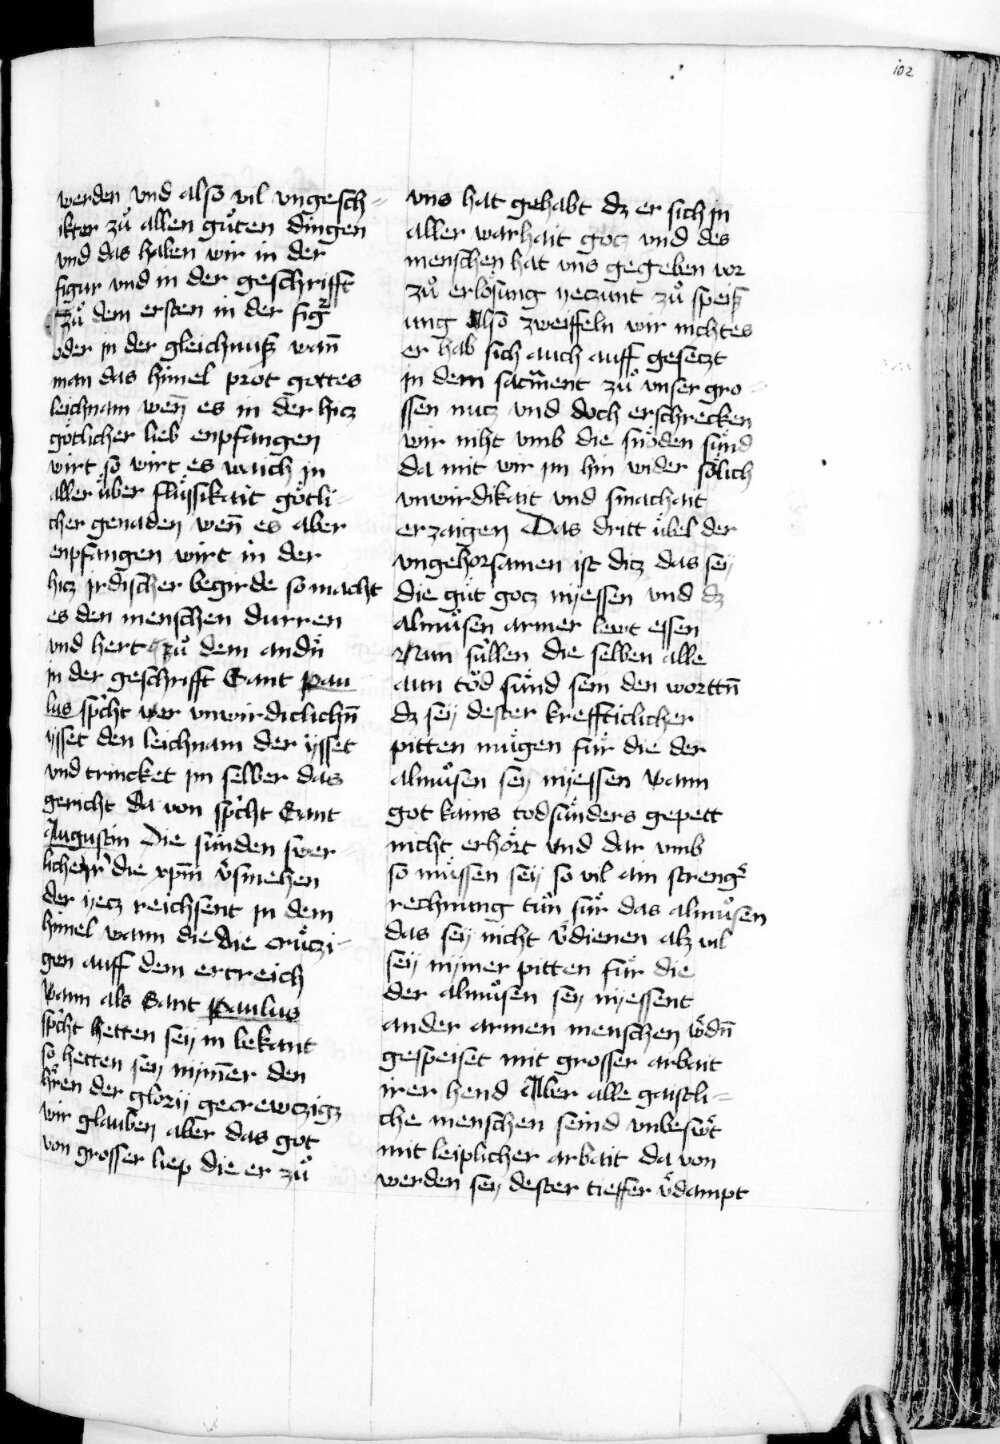 102
werden vnd also vil vngesch-
ikter zuͦ allen guͤten dingen
vnd das haben wir in der
figur vnd in der geschrifft
zuͦ dem ersten in der figͬ
oder jn der gleichnuß wañ
man das himel prot gottes
leichnam wen̄ es in der hicz
goͤtlicher lieb enpfangen
wirt so wirt es waich jn
aller uͤber fluͤssikait goͤtli-
cher genaden wen̄ es aber
enpfangen wirt in der
hicz jrdischer begirde so macht
es den menschen durren
vnd hert zuͦ dem andn̄
jn der geschrifft Sant Pau
lus spͥcht wer vnwirdiclichn̄
ysset den leichnam der ysset
vnd trincket jm selber das
gericht da von spͥcht Sant
Augustin Die suͤnden swer-
licher die xpm̄ v̓smehen
der yecz reichsent jn dem
himel wann die die cruͤczi-
gen auff dem ertreich
Wann als Sant Paulus
spͥcht hetten seij in bekant
so hetten seij nijm̄er den
hͤren der glorij gecrewczigz
wir glauben aber das got
von grosser liep die er zuͦ
vns hat gehabt dz er sich jn
aller warhait gocz vnd des
menschen hat vns gegeben vor
zuͦ erloͤsung yeczunt zuͦ speiß
ung Also zweiffeln wir nichtes
er hab sich auch auff gesetzt
jn dem sacm̄ent zuͦ vnser gro-
ssen nucz vnd doch erschrecken
wir niht vmb die snoͤden suͤnd
da mit wir jm hin wider soͤlich
vnwirdikait vnd smachait
erzaigen Das dritt uͤbel der
vngehorsamen ist dicz das seij
die guͤt gocz nyessen vnd dz
almuͦsen armer lewt essen
Nun suͤllen die selben alle
aun toͤd suͤnd sein den worttn̄
dz seij dester kreffticlicher
pitten muͤgen fuͤr die der
almuͦsen seij nyessen wann
got kains todsuͤnders gepett
nicht erhoͤrt vnd dar vmb
so muͤssen seij so vil ain strengͤ
rechnung tuͦn fuͤr das almuͦsen
das seij nicht v̓dienen alz vil
seij nymer pitten fuͤr die
der almuͦsen seij nyessent
ander armen menschen wͤdn̄
gespeiset mit grosser arbait
irer hend Aber alle gaistli-
che menschen seind vnbeswͤt
mit leiplicher arbait da von
werden seij dester tieffer v̓dampt